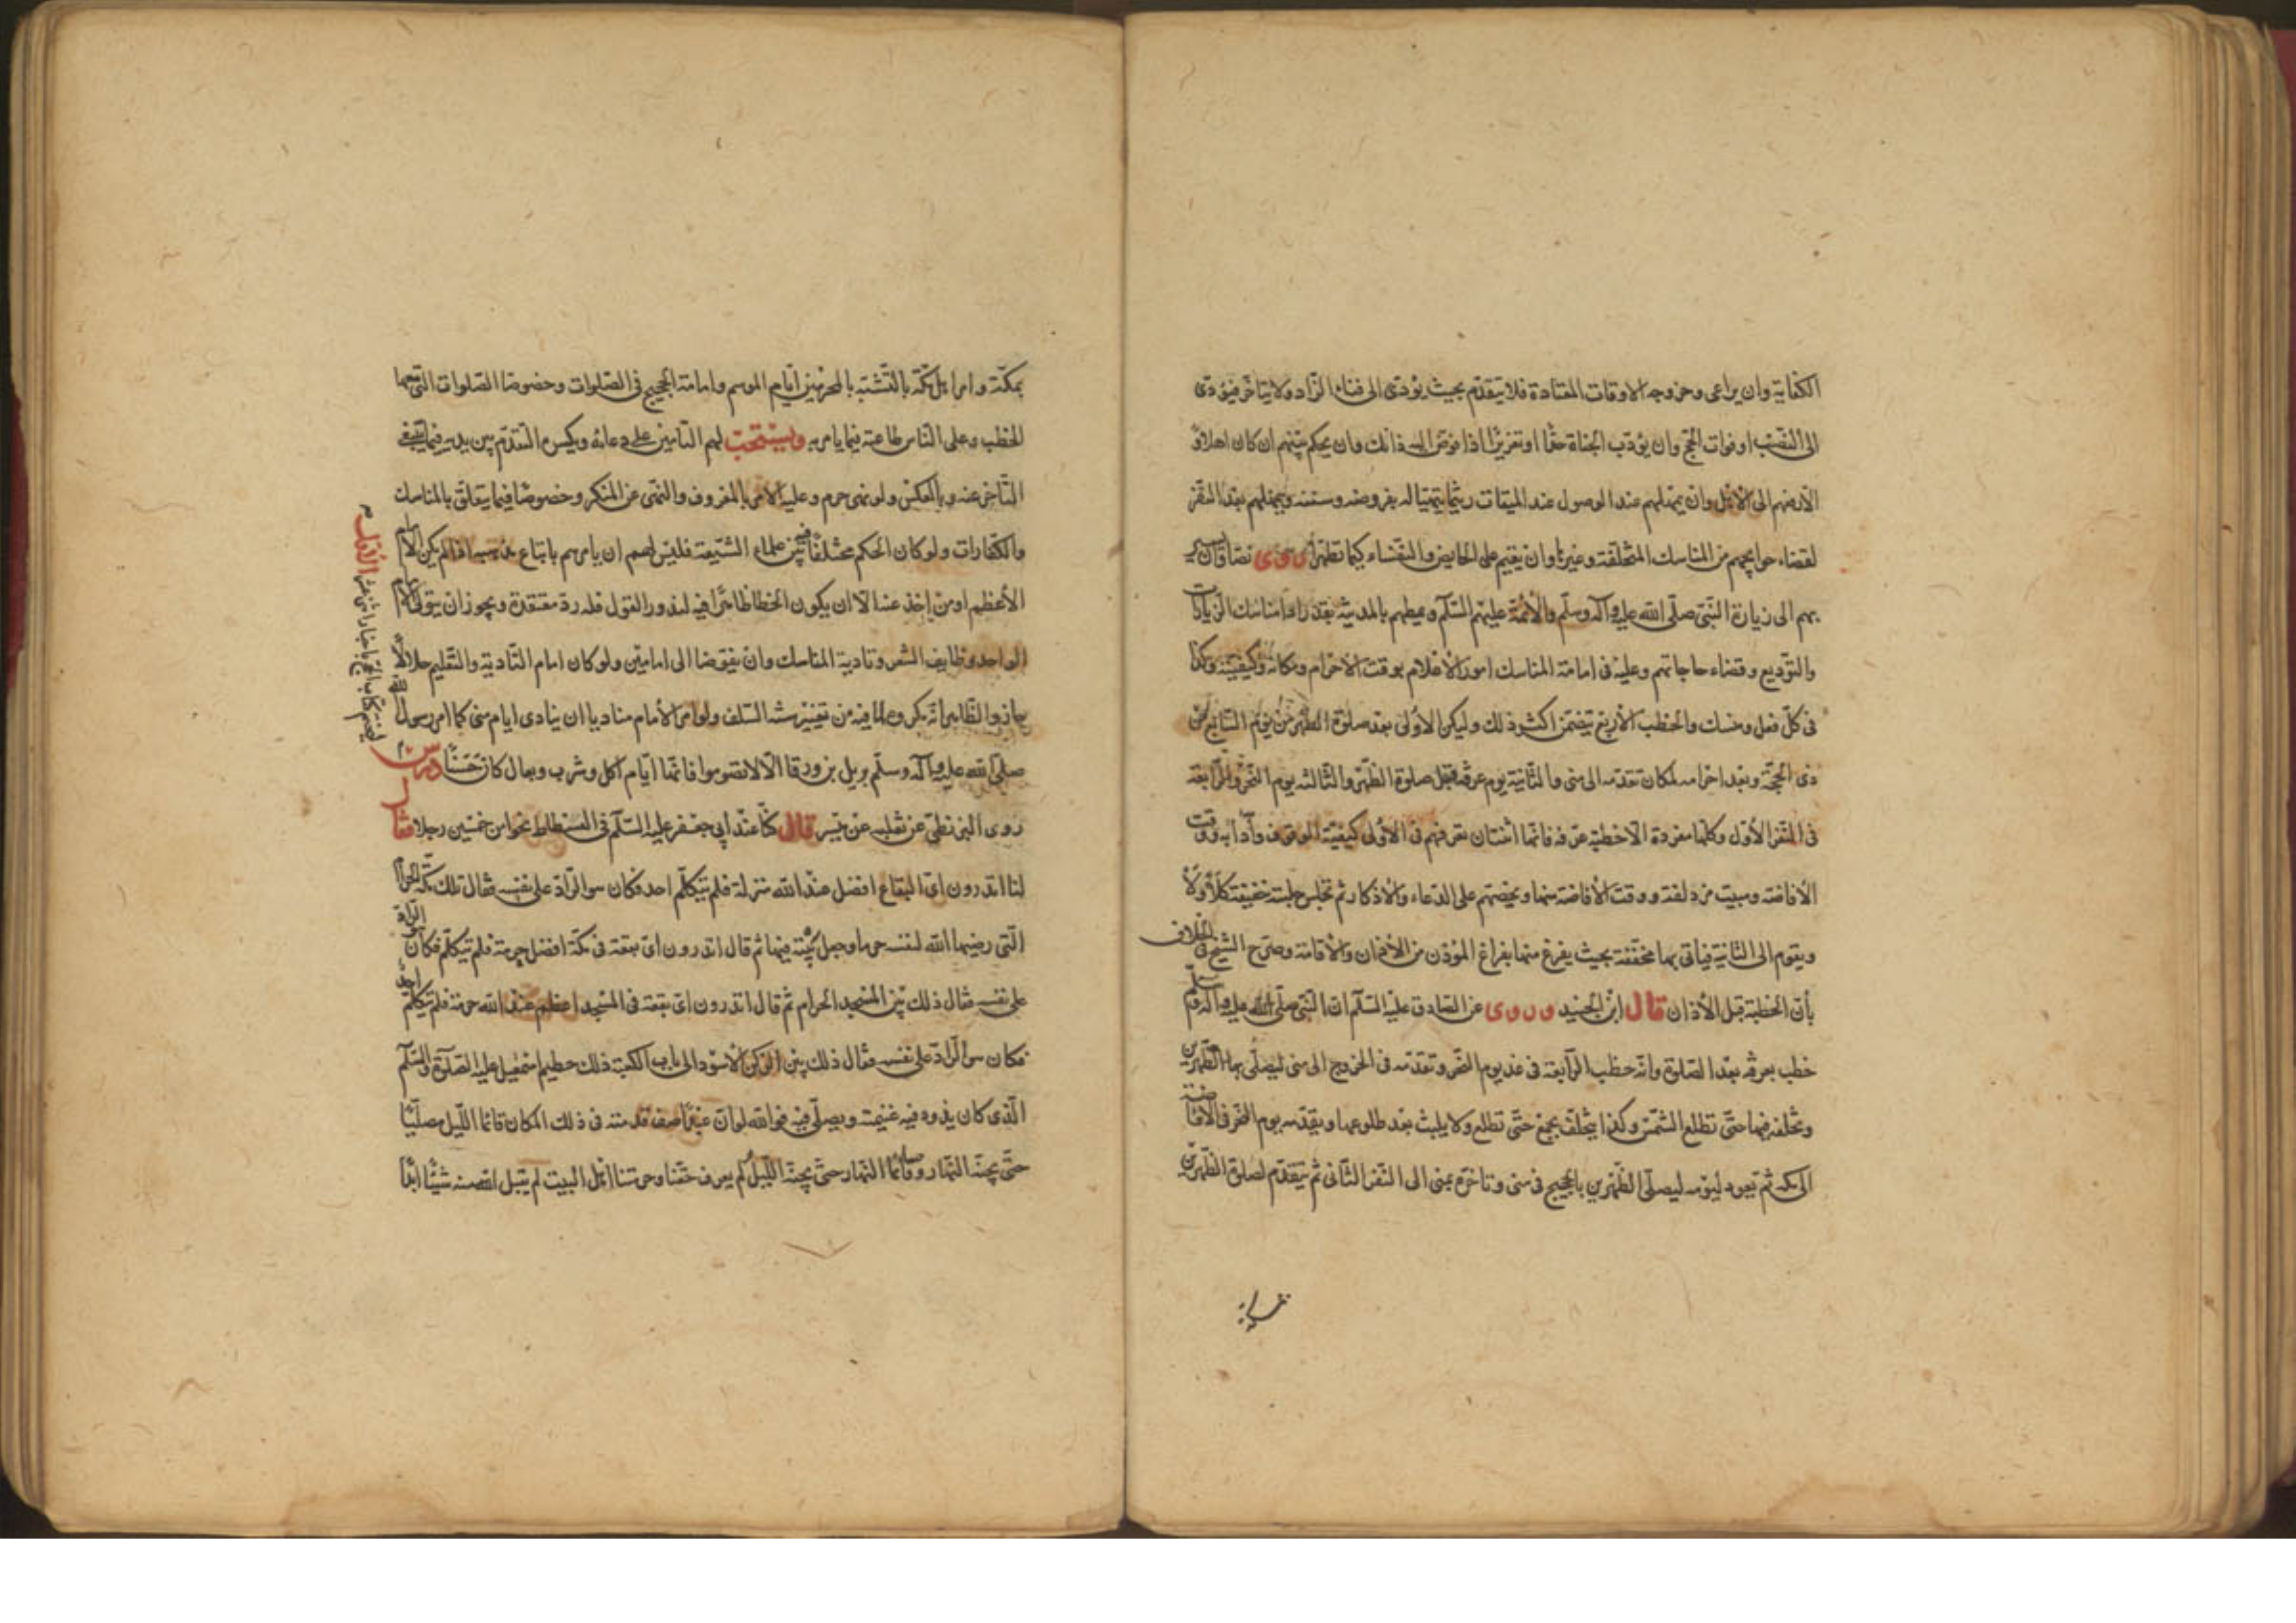 الكفاية وان يراعى وخروجه الاوقات المعتادة فلا يتقدّم بحيث يؤدّى الى فناء الزّاد ولا يتاخّر فيؤدّى
الى النّصَب او فوات الحجّ وان يؤدّب الجناة حدًّا او تعزيرًا اذا فوّض اليه ذلك وان يحكم بينهم ان كان اهلا والّا
الأرفعهم الى الأهل وان يمهلهم عند الوصول عند الميقات ريثما يتهيّا له بفروضه وسننه ويمهلهم بعد النّفر
لقضاء حوايجهم من المناسك المتخلّفة وغيرها وان يقيم على الحايض والنّفساء كيما تطهرا روى نصّا وان يسير
بهم الى زيارة النّبىّ صلّى الله عليه وآله وسلّم والأئمّة عليهم السّلام ويمهلهم بالمدينة بقدر اداء مناسك الزّيارات
والتّوديع وقضاء حاجاتهم وعليه فى امامة المناسك امور الأعلام بوقت الاحرام ومكانه وكيفيّته وكذا
فى كلّ فعل ومنسك والخطب الأربع تتضمّن اكثر ذلك وليكن الاولى بعد صلوة الظّهر من يوم السّابع من
ذى الحجّة وبعد احرامه لمكان تقدّمه الى منى والثّانية يوم عرفة قبل صلوة الظّهر والثّالثة يوم النّحر والرّابعة
فى النّفر الأوّل وكلّها مفردة الّا خطبة عرفه فانّها اثنتان يعرفهم فى الاولى كيفيّة الوقوف وآدابه ووقت
الأفاضة ومبيت مزدلفة ووقت الأفاضة منها ويحضّهم على الدّعاء والأذكار ثم تجلس جلسة خفيفة كلا ولا
ويقوم الى الثّانية فيأتى بها مخفّفة بحيث يفرغ منها بفراغ المؤذن من الأذان والأقامة وصرّح الشّيخ فى الخلاف
بأنّ الخطبة قبل الأذان قال ابن الجنيد وروى عن الصّادق عليه السّلم انّ النّبىّ صلّى الله عليه وآله وسلّم
خطب بعرفه بعد الصّلوة وانّه خطب الرّابعة فى غد يوم النّحر وتقدّمه فى الخروج الى منى ليصلّى بها الظّهرين
وتخلّفه فيها حتّى تطلع الشّمس وكذا يتخلّف بجمع حتّى تطلع ولا يلبث بعد طلوعها ويقدّمه يوم النّحر فى الأفاضة
الى مكه ثمّ يعود ليومه ليصلّى الظّهرين بالحجيج فى منى وتاخّره بمنى الى النّفر الثّانى ثم يتقدّم لصلوة الظّهرين
بمكّة وامر اهل مكّة بالتّشبّه بالمحرمين ايّام الموسم وامامة الحجيج فى الصّلوات وخصوصا الصّلوات الّتى معها
الخطب وعلى النّاس طاعته فيما يامر به ويستحبّ لهم التّامين على دعائه ويكره التّقدّم بين يديه فيما ينبغى
التّاخر عنه وبالعكس ولو نهى حرم وعليه الامر بالمعروف والنّهى عن المنكر وخصوصًا فيما يتعلّق بالمناسك
والكفّارات ولو كان الحكم مختلفًا فيه بين علماء الشّيعة فليس لهم ان يامرهم باتباع مذهبه اذا لم يكن الأمام
الأعظم او من اخذ عنه الّا ان يكون الخطا ظاهرًا فيه لندور القول فله ردّ معتقده ويجوز ان يتولى الأمام
الواحد وظايف الشعر وتادية المناسك وان يفوّضا الى امامين ولو كان امام التّادية والتّعليم حلالًا
جاز والظّاهر انّه يكره لما فيه من تغيير سنّه السّلف ولو امر الأمام مناديا ان ينادى ايام منى كما امر رسول الله
صلّى الله عليه وآله وسلّم بديل بن ورقا الّا لا تصوموا فانّها ايّام اكل وشرب وبعال كان حَسَنًا درس
روى البزنطىّ عن ثعلبه عن ميسر قال كنّا عند ابى جعفر عليه السّلم فى الفسطاط نحوا من خمسين رجلا فقال
لنا اتدرون اىّ البقاع افضل عند الله منزلة فلم يتكلّم احد فكان هو الرّادّ على نفسه فقال تلك مكّة الحرام
الّتى رضيها الله لنفسه حرما وجعل بيته فيها ثم قال اتدرون اىّ بقعة فى مكّة افضل حرمة فلم يتكلّم فكان هو الرّادّ
على نفسه فقال ذلك بين المسجد الحرام ثم قال اتدرون اىّ بقعة فى المسجد اعظم عند الله حرمة فلم يتكلّم احد
فكان هو الرّادّ على نفسه فقال ذلك بين الرّكن الأسود الى باب الكعبة ذلك حطيم اسمعيل عليه الصّلاة والسّلم
الّذى كان يذود فيه غنيمته ويصلّى فيه فوالله لو انّ عبدًا صف قدميه فى ذلك المكان قائما اللّيل مصلّيًا
حتّى يجنّه النّهار وقائما النّهار حتّى يجنّه اللّيل ولم يعرف حقّنا وحرمتنا اهل البيت لم يقبل الله منه شيئًا ابدًا